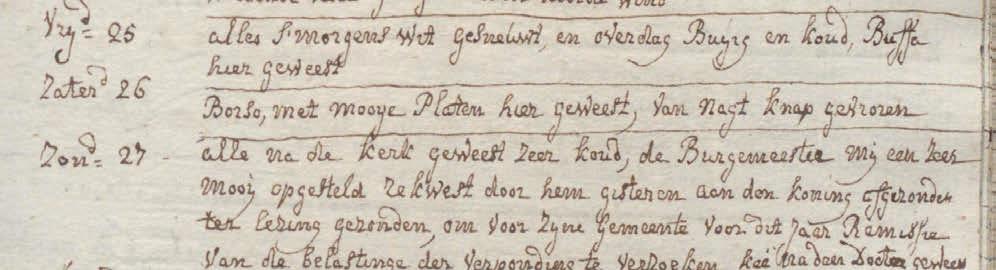 Vryd= 25 alles s'morgens wit gesneuwt, en overdag Buyig en koud, Buffa
hier geweest
Zaterd 26
Borso, met mooye Platen hier geweest, van nagt knap gevroren
Zond= 27 - alle na de kerk geweest zeer koud, de Burgemeester mij een zeer
mooij opgesteld rekwest door hem gisteren aan den koning afgezonden
ter lezing gezonden, om voor zyne Gemeente voor dit Jaar Remissie
van de belastinge der verponding te verzoeken, geween